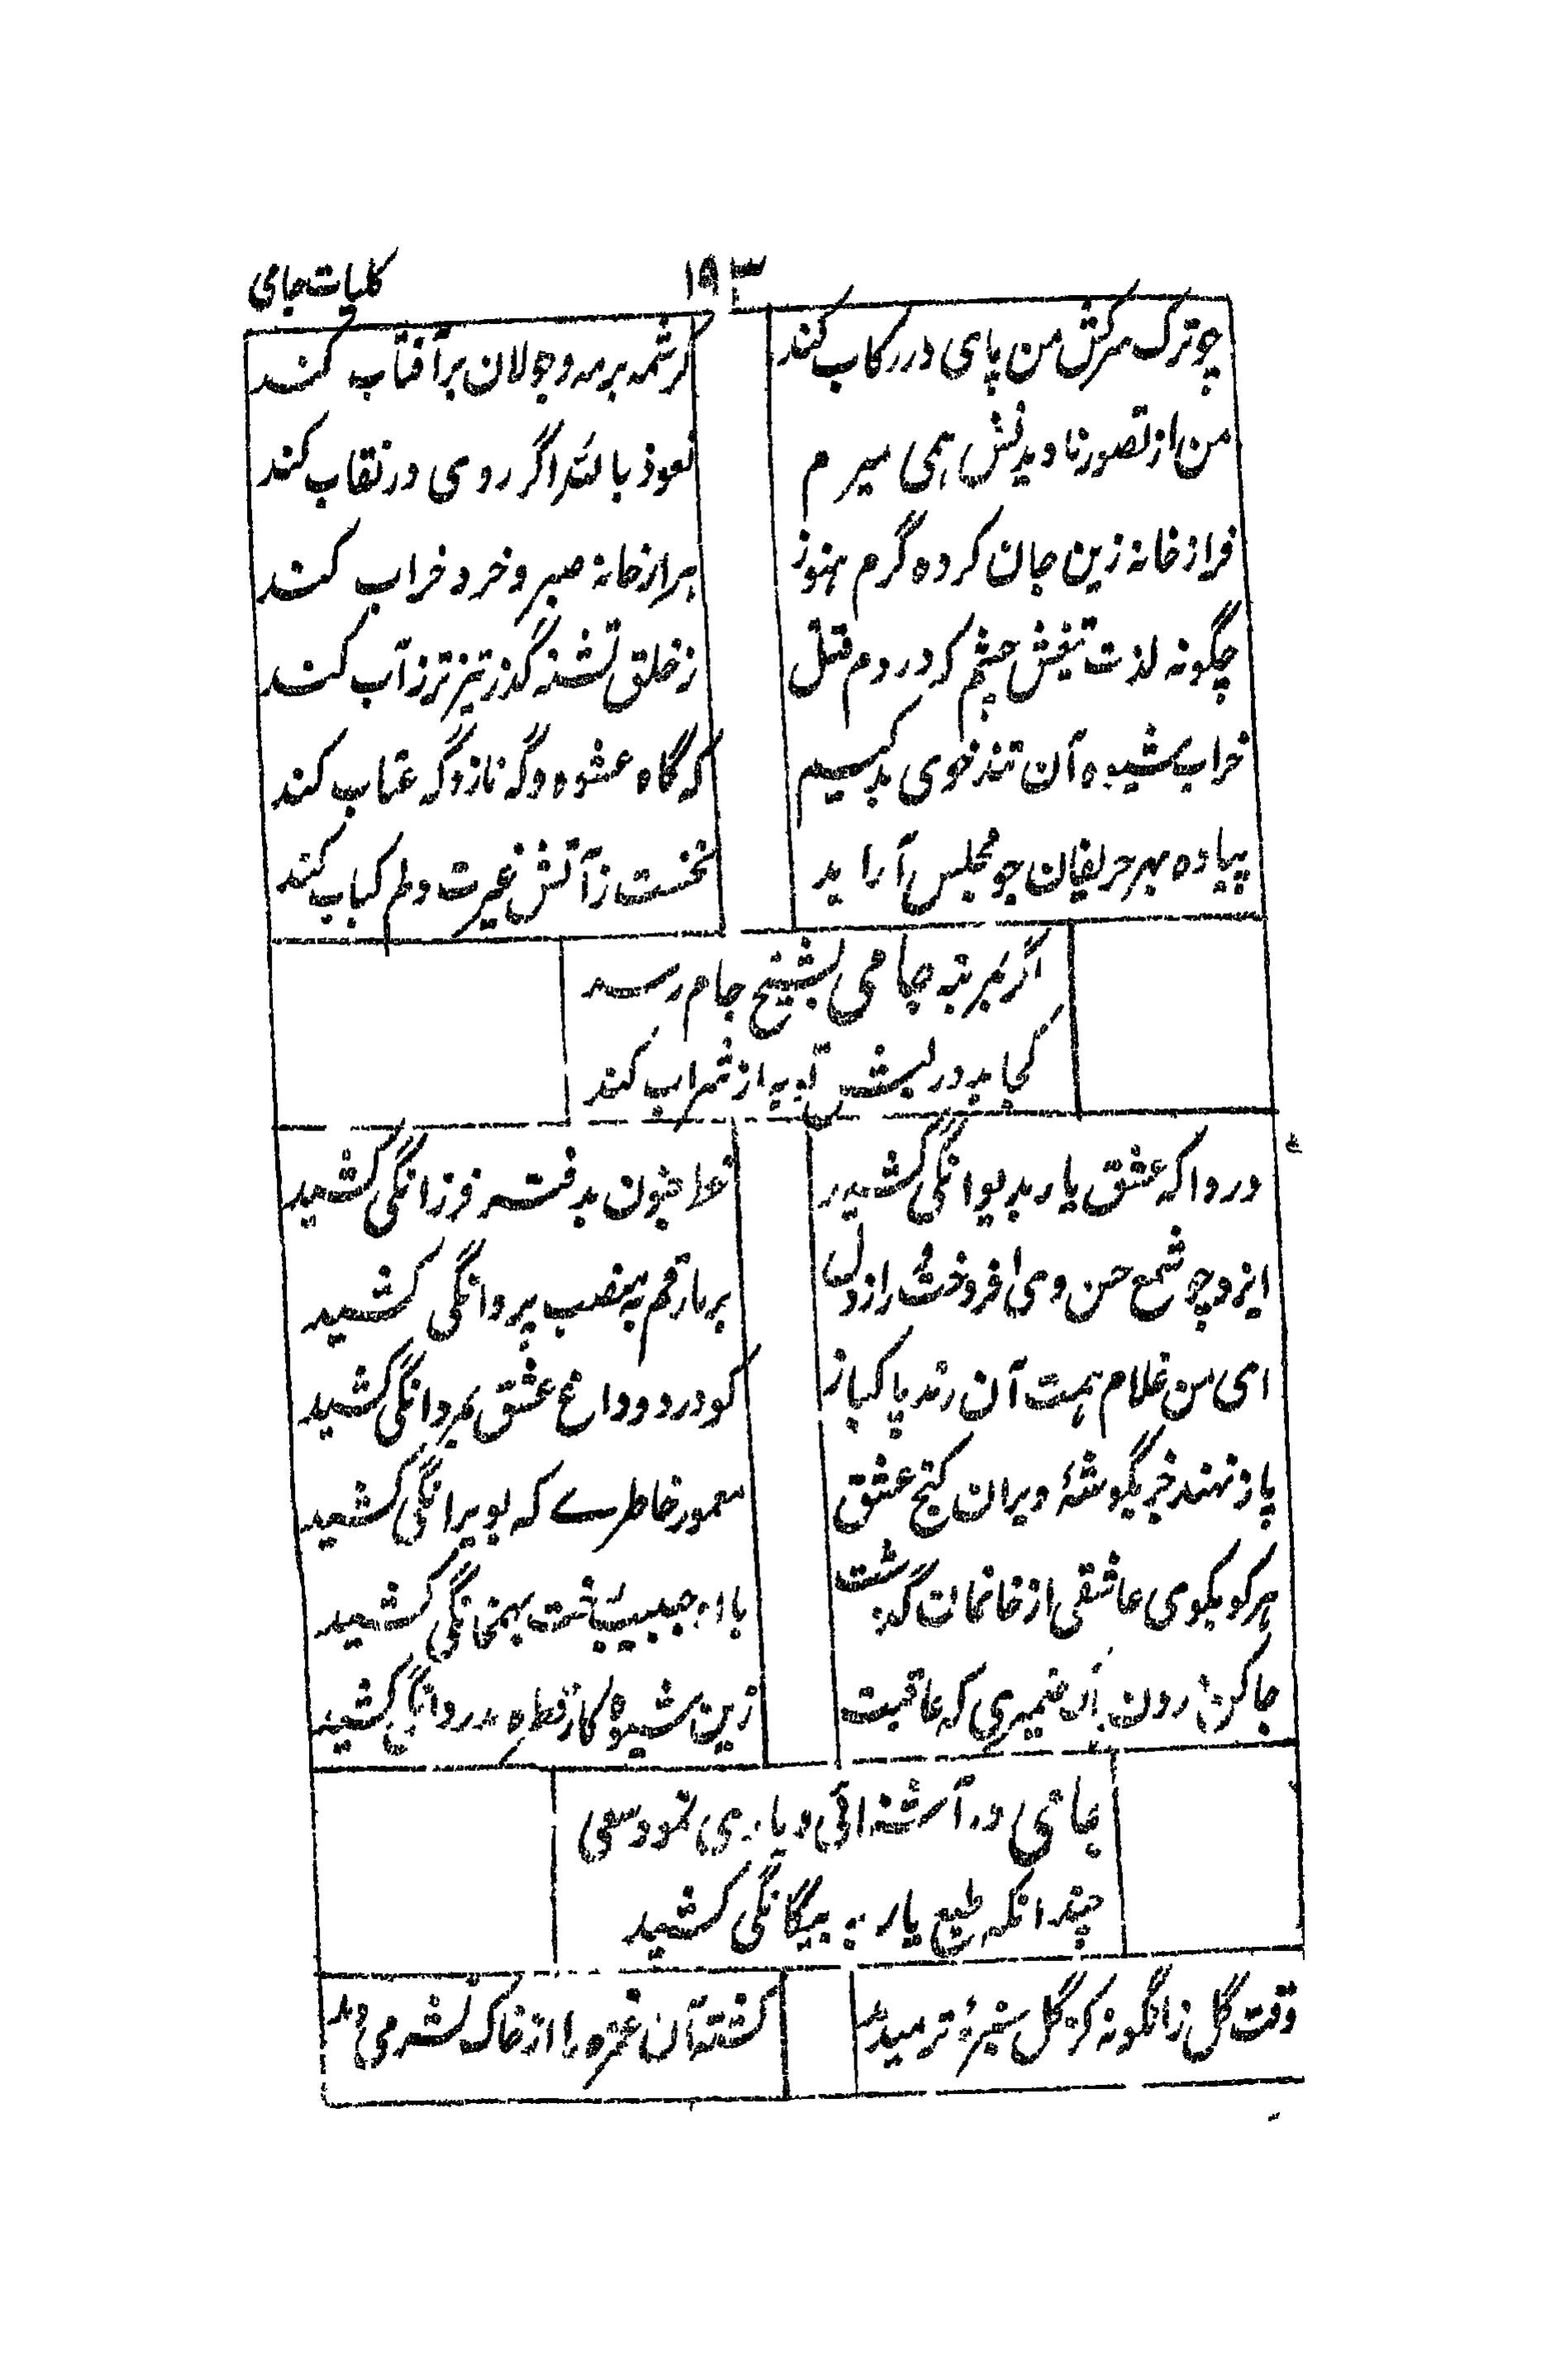 کلیات جامی
۱۹۳
چو ترک سرکش من پای در رکاب کند
کرشمه بر مه و جولان بر آفتاب کند
من از تصور نادیدنش همی میرم
نعوذ بالله اگر روی در نقاب کند
فراز خانه زین جان کرده گرم هنوز
هزار خانه صبر و خرد خراب کند
چگونه لذت تیغش چشم که در دم قتل
ز حلق تشنه گذر تیزتر ز آب کند
خراب شیوه آن تندخوی بدکیشم
که گاه عشوه و گه ناز و گه عتاب کند
پیاده بهر حریفان چو مجلس آراید
نخست ز آتش غیرت دلم کباب کند
اگر بمرتبه جامی بشیخ جام رسد
کجا بدور لبش توبه از شراب کند
دردا که عشق یار بدیوانگی کشید
خط جنون بدفتر فرزانگی کشید
ایزد چو شمع حسن وی افروخت از ازل
بر ما رقم به منصب پروانگی کشید
ای من غلام همت آن رند پاکباز
کو درد و داغ عشق بمردانگی کشید
پا ننهند خبر بگوشهٔ ویران کنج عشق
معمور خاطرے که بویرانگی کشید
هر کو بکوی عاشقی از خانمان گذشت
با او حبیب تخت بهمخانگی کشید
جا کن درون ضمیری که عاقبت
زین شیوه کار قطره بدردانگی کشید
جامی در آشنائی و یاری نمود سعی
چندانکه طبع یار به بیگانگی کشید
وقت گل زانگونه کز گل سبزهٔ تر میدمد
کشته آن غمزه را از خاک نشتر می دمد